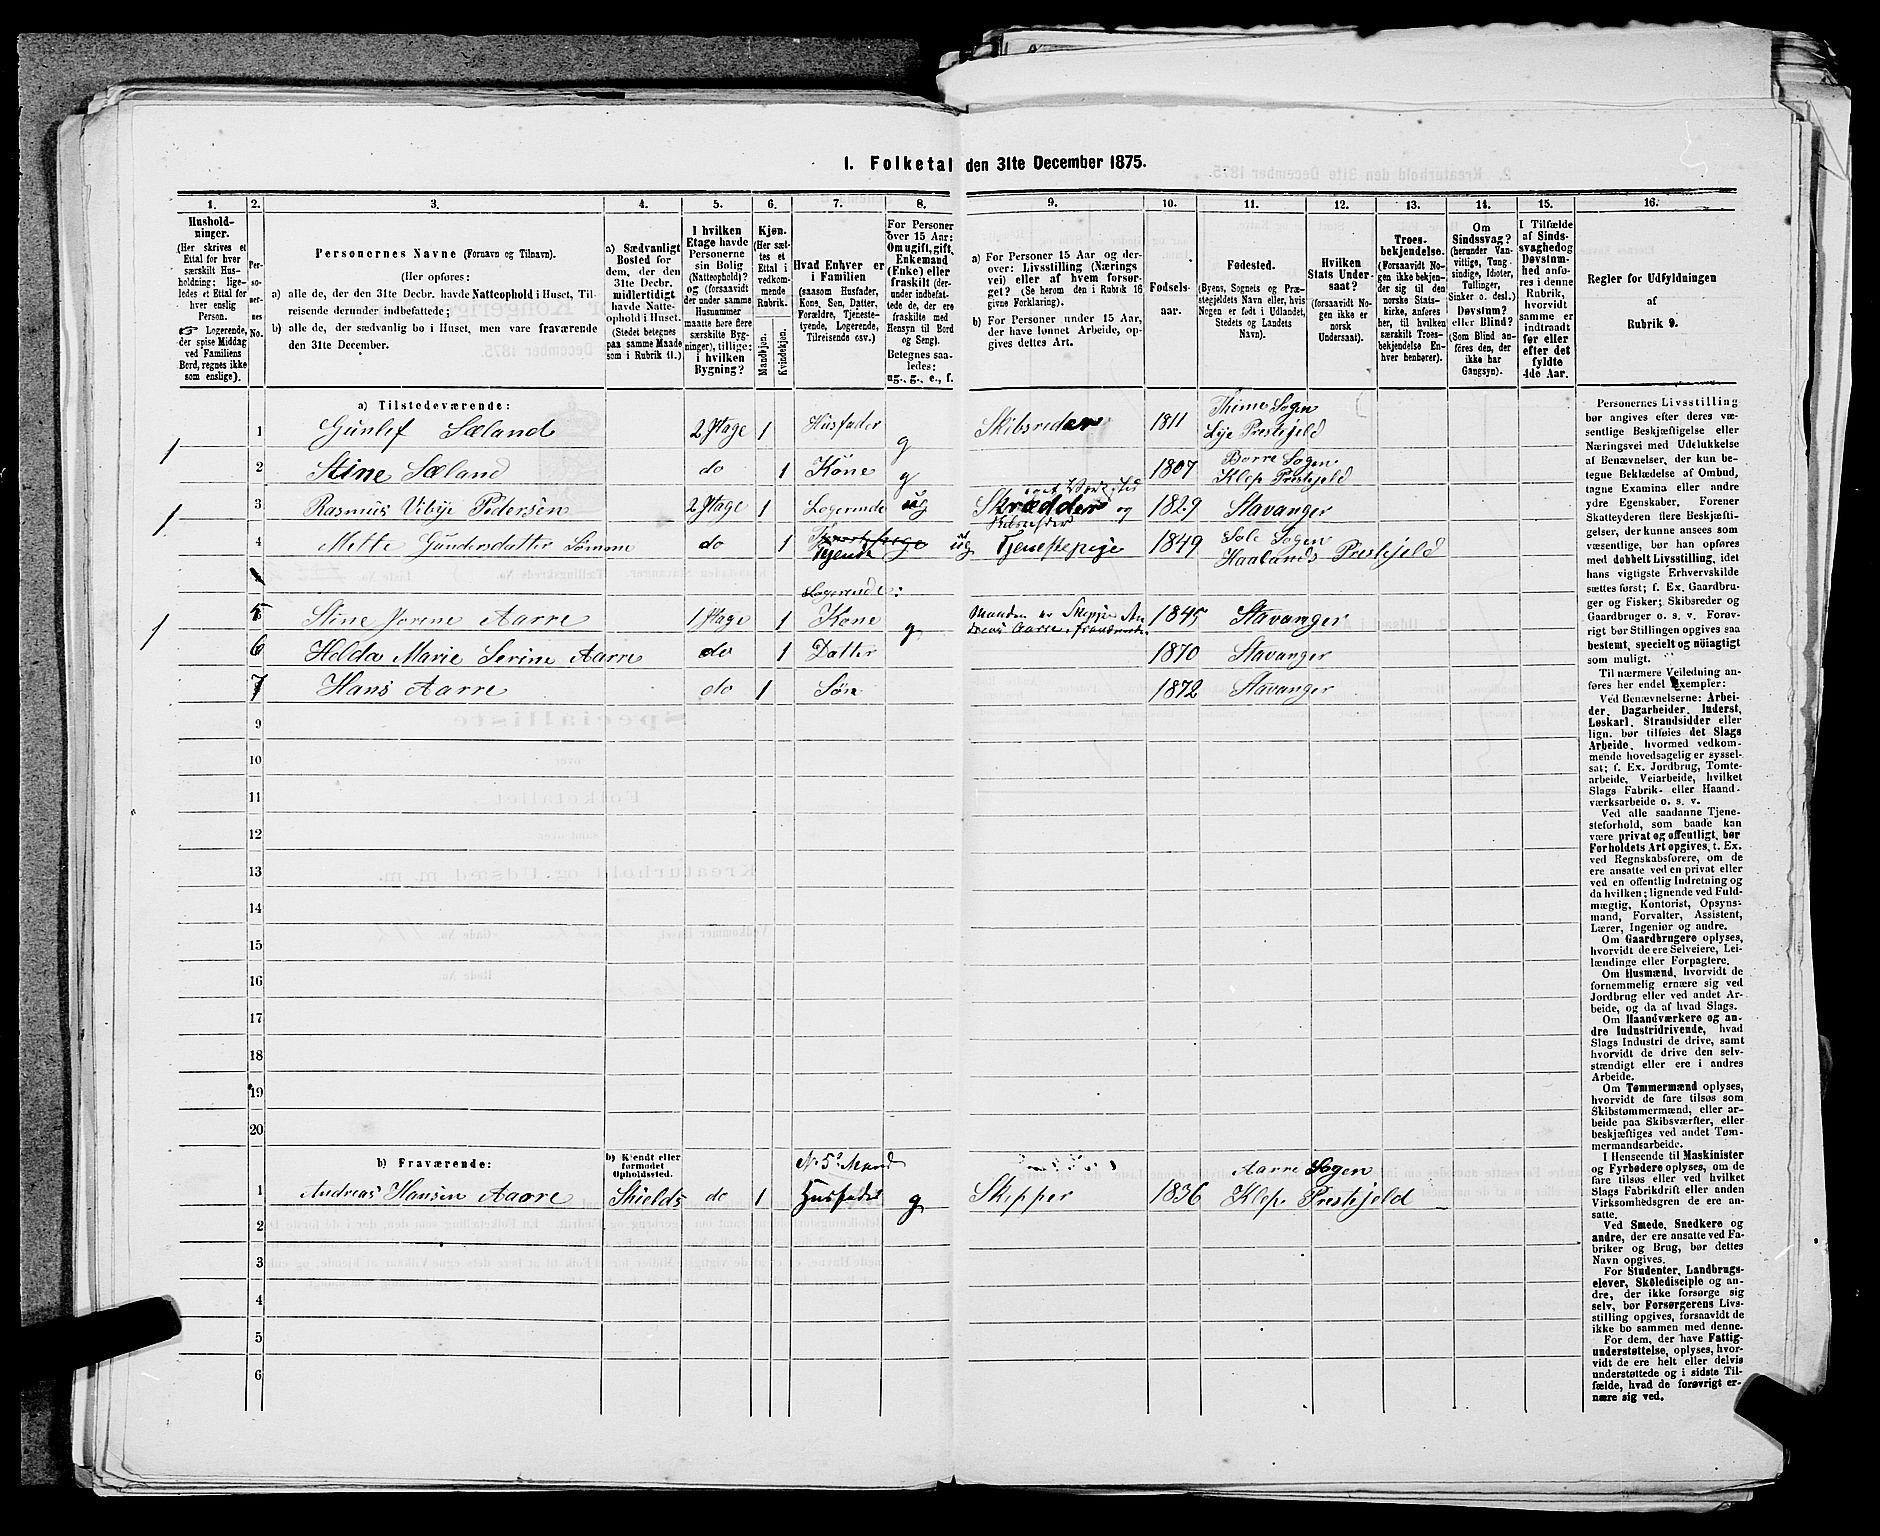 1. Folketal den 31te December 1875.
1. 2. 3. 4. 5. 6. 7. 8. 9. 10. 11. 12. 13. 14. 15. 16.
Hushold-
ninger.
(Her skrives et
Ettal for hver
særskilt Hus-
holdning; lige-
ledes et Ettal for
hver enslig
Person.
☞ Logerende,
der spise Middag
ved Familiens
Bord, regnes ikke
som enslige).
Per-
soner-
nes
No.
Personernes Navne (Fornavn og Tilnavn).
(Her opføres:
a) alle de, der den 31te Decbr. havde Natteophold i Huset, Til-
reisende derunder indbefattede;
b) alle de, der sædvanlig bo i Huset, men vare fraværende
den 31te December.
a) Sædvanligt
Bosted for
dem, der den
31te Decbr.
midlertidigt
havde Natte-
ophold i Huset.
(Stedet betegnes
paa samme Maade
som i Rubrik 11.)
I hvilken
Etage havde
Personerne
sin Bolig
(Natteophold)?
og (forsaavidt
der under samme
Husnummer
maatte høre flere
særskilte Byg-
ninger), tillige:
i hvilken
Bygning?
Kjøn.
(Her sæt-
tes et
Ettal i
vedkom-
mende
Rubrik.
Mandkjøn.
Kvindekjøn.
Hvad Enhver er
i Familien
(saasom Husfader,
Kone, Søn, Datter,
Forældre, Tjeneste-
tyende, Logerende,
Tilreisende osv.)
For Personer
over 15 Aar:
Om ugift, gift,
Enkemand
(Enke) eller
fraskilt (der-
under indbefat-
tede de, der ere
fraskilte med
Hensyn til Bord
og Seng).
Betegnes saa-
ledes:
ug., g., e., f.
a) For Personer 15 Aar og der-
over: Livsstilling (Nærings
vei) eller af hvem forsør-
get? (Se herom den i Rubrik 16
givne Forklaring).
b) For Personer under 15 Aar,
der have lønnet Arbeide, op-
gives dettes Art.
Fødsels-
aar.
Fødested.
(Byens, Sognets og Præ-
stegjeldets Navn eller, hvis
Nogen er født i Udlandet,
Stedets og Landets
Navn).
Hvilken
Stats Under-
saat?
(forsaavidt No-
gen ikke er
norsk
Undersaat).
Troes-
bekjendelse.
(Forsaavidt No-
gen ikke bekjen-
der sig til den
norske Stats-
kirke, anføres
her, til hvilken
særskilt Troes-
bekjendelse En-
hver henhører).
Om
Sindssvag?
(herunder Van-
vittige, Tung-
sindige, Idioter,
Tullinger,
Sinker o. desl.)
Døvstum?
eller Blind?
(Som Blind an-
føres den, der
ikke har
Gangsyn).
I Tilfælde
af Sinds-
svaghed og
Døvstum-
hed anfø-
res i denne
Rubrik,
hvorvidt
samme er
indtraadt
før eller
efter det
fyldte
4de Aar.
Regler for Udfyldningen
af
Rubrik 9.
a) Tilstedeværende:
1 1 Gunlef Sæland 2 Etage 1 Husfader g Skibsreder 1811 Thime Sogn
Lye Prestejeld
2 Stine Sæland do 1 Kone g 1807 Borre Sogn
Klep Prestejeld
1 3 Rasmus Vibye Pedersen 2 Etage 1 Logerende ug Skrædder og 1829 Stavanger
4 Mette Gundersdatter Sømme do 1 Tjende ug Tjenestepige 1849 Sole Sogen
Haalands Prestejeld
Logerende:
1 5 Stine Jorine Aarre 1 Etage 1 Kone g Manden er Skipper An-
dreas Aarre, fraværende 1845 Stavanger
6 Helda Marie Serine Aarre do 1 Datter 1870 Stavanger
7 Hans Aarre do 1 Søn 1872 Stavanger
9
10
11
12
13
14
15
16
17
18
19
20
b) Fraværende:
b) Kjendt eller
formodet
Opholdssted.
N. 5s Mand
1 Andreas Hansen Aarre Shields do 1 Husfader g Skipper 1836 Aarre Sogen
Klep Prestejeld
2
3
4
5
6
Personernes Livsstilling
bør angives efter deres væ-
sentlige Beskjæftigelse eller
Næringsvei med Udelukkelse
af Benævnelser, der kun be-
tegne Beklædelse af Ombud,
tagne Examina eller andre
ydre Egenskaber. Forener
Skatteyderen flere Beskjæfti-
gelser, der kunne ansees som
væsentlige, bør han opføres
med dobbelt Livsstilling, idet
hans vigtigste Erhvervskilde
sættes først; f. Ex. Gaardbru-
ger og Fisker; Skibsreder og
Gaardbruger o. s. v. Forøv-
rigt bør Stillingen opgives saa
bestemt, specielt og nöiagtigt
som muligt.
Til nærmere Veiledning an-
føres her endel Exempler:
Ved Benævnelserne: Arbei-
der, Dagarbeider, Inderst,
Løskarl, Strandsidder eller
lign. bør tilføies det Slags
Arbeide, hvormed vedkom-
mende hovedsagelig er syssel-
sat; f. Ex. Jordbrug, Tomte-
arbeide, Veiarbeide, hvilket
Slags Fabrik- eller Haand-
værksarbeide o. s. v.
Ved alle saadanne Tjene-
steforhold, som baade kan
være privat og offentligt, bør
Forholdets Art opgives, t. Ex.
ved Regnskabsførere, om de
ere ansatte ved en privat eller
ved en offentlig Indretning og
da hvilken; lignende ved Fuld-
mægtig, Kontorist, Opsyns-
mand, Forvalter, Assistent,
Lærer, Ingeniør og andre.
Om Gaardbrugere oplyses,
hvorvidt de ere Selveiere, Lei-
lændinge eller Forpagtere.
Om Husmænd, hvorvidt de
fornemmelig ernære sig ved
Jordbrug eller ved andet Ar-
beide, og da af hvad Slags.
Om Haandværkere og an-
dre Industridrivende, hvad
Slags Industri de drive, samt
hvorvidt de drive den selv-
stændigt eller ere i andres
Arbeide.
Om Tømmermænd oplyses,
hvorvidt de fare tilsøs som
Skibstømmermænd, eller ar-
beide paa Skibsværfter, eller
beskjæftiges ved andet Tøm-
mermandsarbeide.
I Henseende til Maskinister
og Fyrbødere oplyses, om de
fare tilsøs eller ved hvilket
Slags Fabrikdrift eller anden
Virksomhedsgren de ere an-
satte.
Ved Smede, Snedkere og
andre, der ere ansatte ved Fa-
briker og Brug, bør dettes
Navn opgives.
For Studenter, Landbrugs-
elever, Skoledisciple og an-
dre, der ikke forsørge sig
selv, bør Forsørgerens Livs-
stilling opgives, forsaavidt de
ikke bo sammen med denne.
For dem, der have Fattig-
understøttelse, oplyses, hvor-
vidt de ere helt eller delvis
understøttede og i sidste Til-
fælde, hvad de forøvrigt er-
nære sig ved.